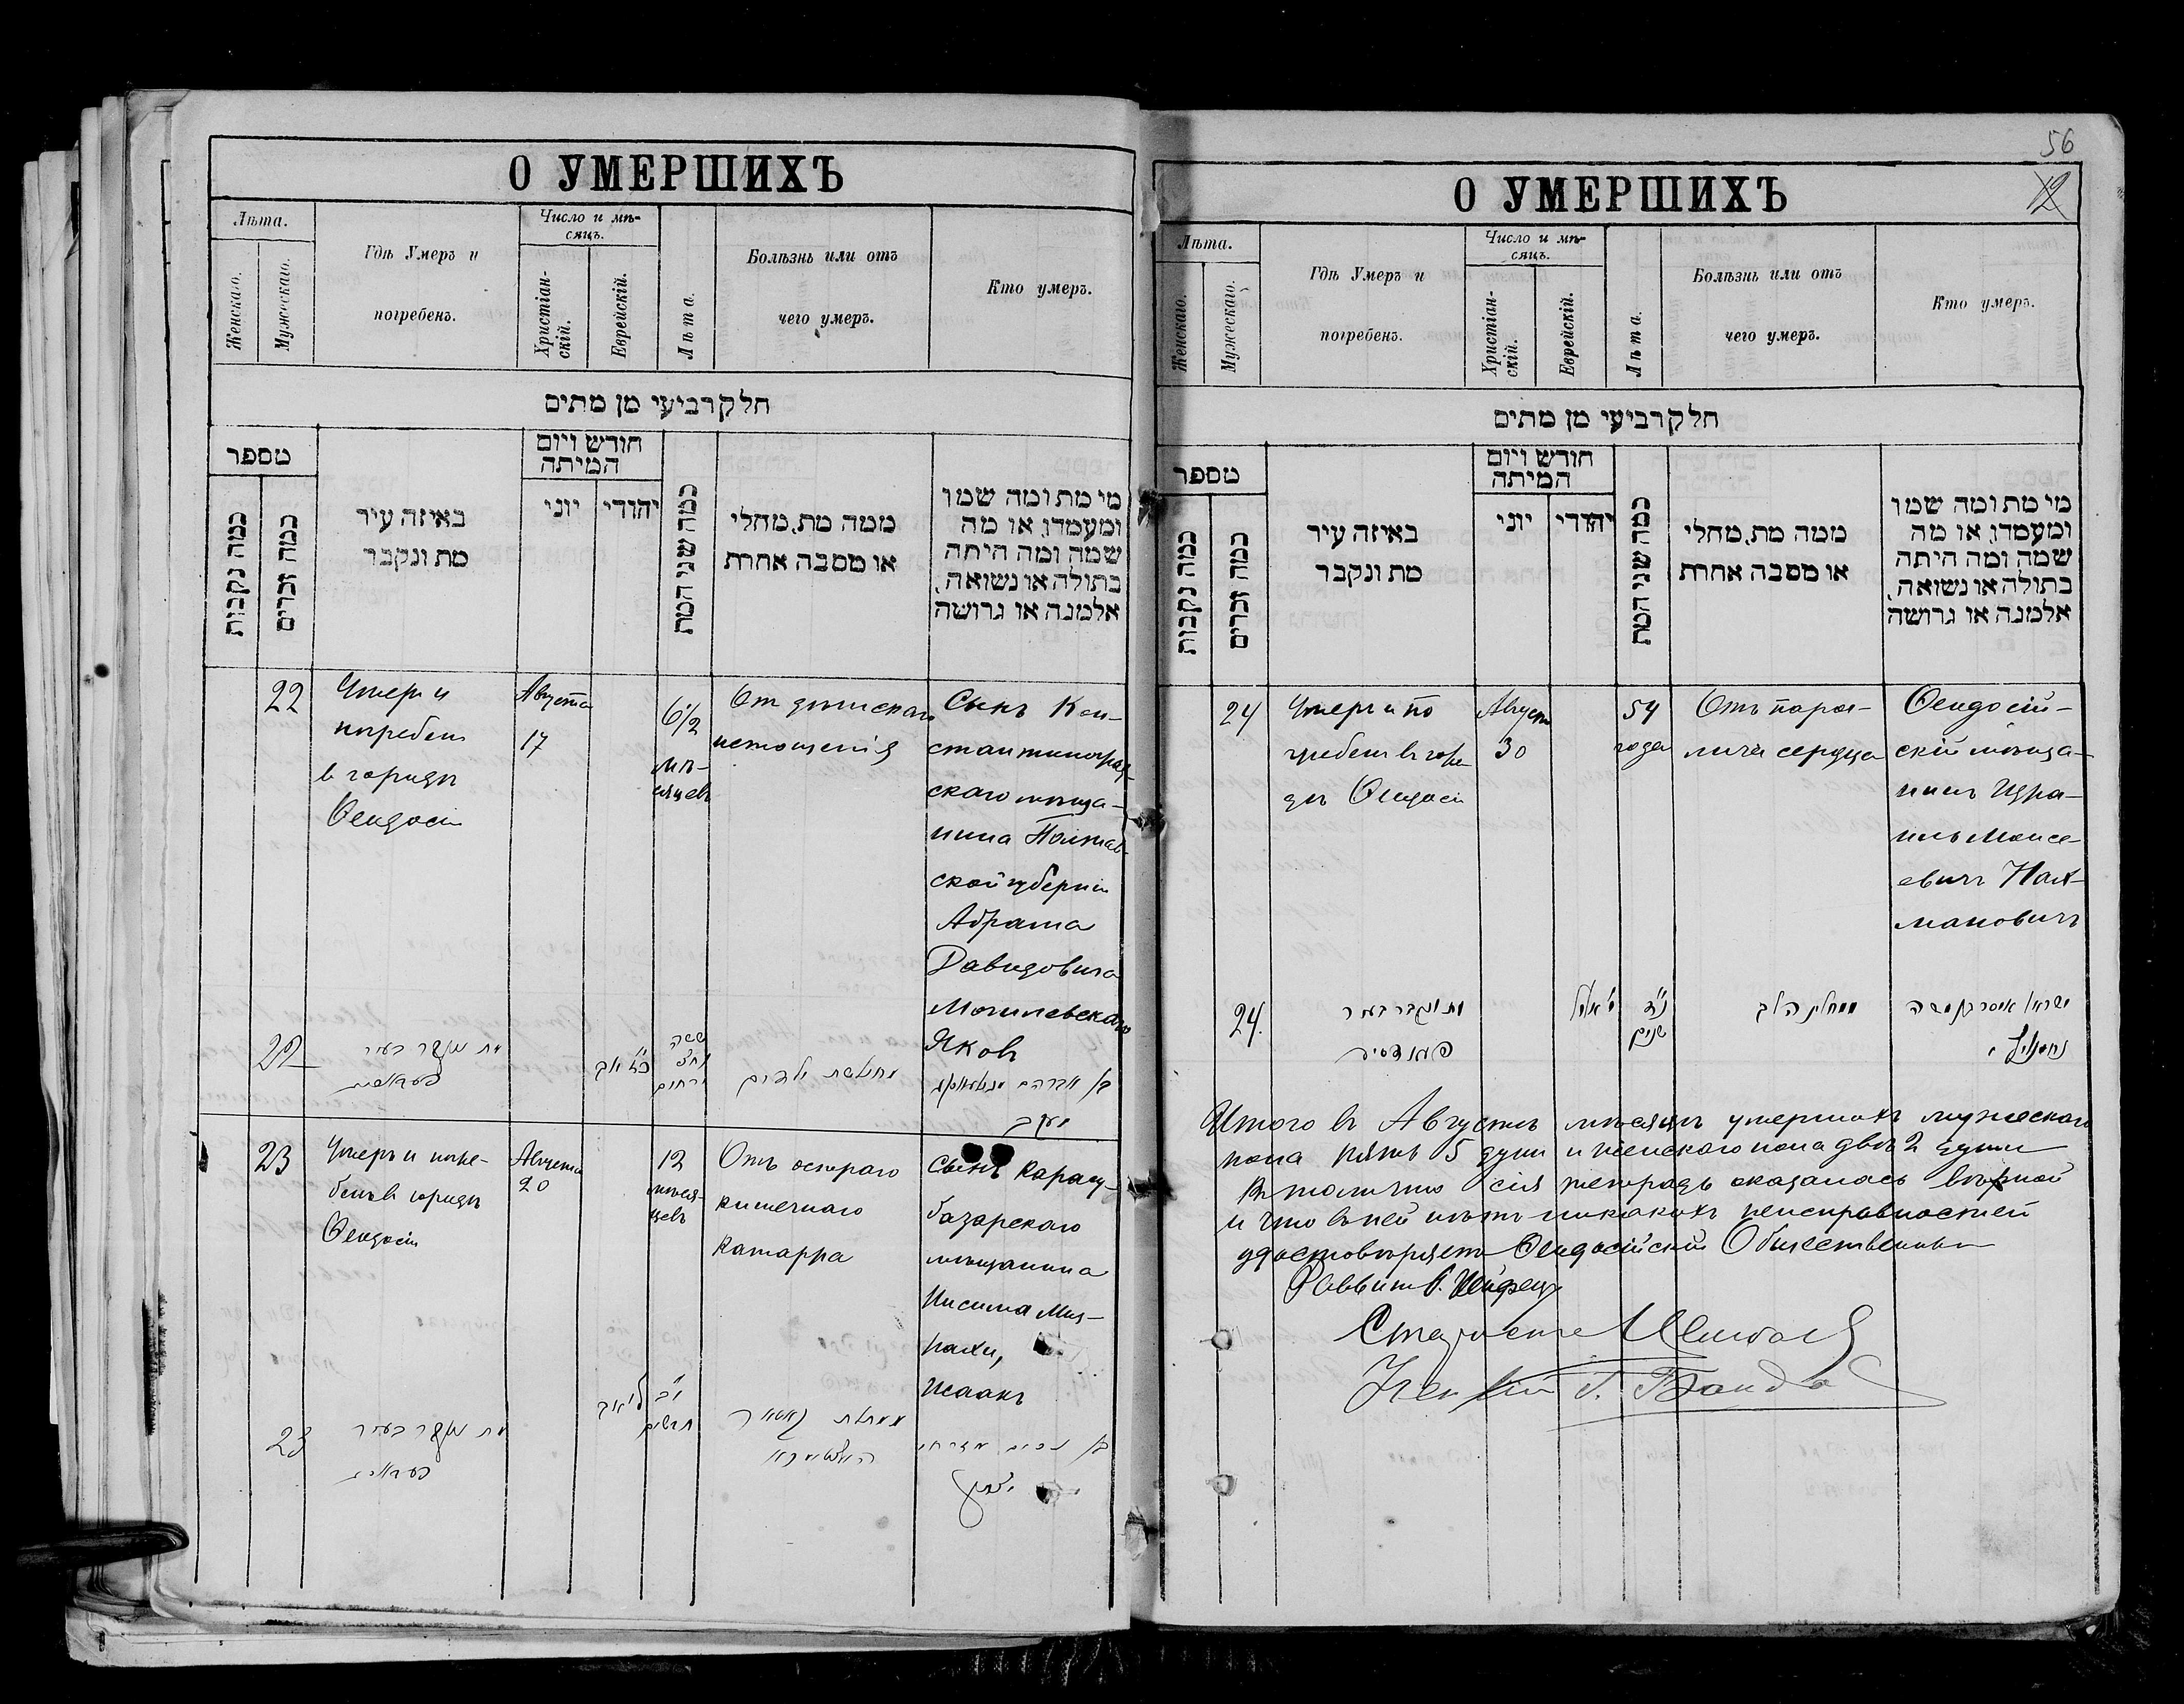 О УМЕРШИХЪ
Лѣта.
Женскаго.
Мужескаго.
Гдѣ Умеръ и
погребенъ.
Число и мѣ-
сяцъ.
Христіан-
скій.
Еврейскій.
Лѣта.
Болѣзнь или отъ
чего умеръ.
Кто умеръ.
חלק רביעי מן מתים
מספר
כמה נקבות
כמה זכרים
באיזה עיר
מת ונקבר
חודש ויום
המיתה
יוני
יהודי
כמה שני המת
ממה מת, מחלי
או מסבה אחרת
מי מת ומה שמו
ומעמדו, או מה
שמה ומה היתה
בתולה או נשואה,
אלמנה או גרושה
22
Умеръ и
погребенъ
в городѣ
Ѳеодосіи
Августа
17
6 1/2
мѣ-
сяцевъ
От дѣтскаго
истощенія
Сынъ Кон-
стантиноград-
скаго мѣща-
нина Полтав-
ской губерніи
Абрама
Давидовича
Могилевскаго
Яковъ
22
מת ונקבר בעיר
אב
ששה
וחצי
ירחים
מחולשת ילדים
בן אברהם
יעקב
23
Умеръ и погре-
бенъ в городѣ
Ѳеодосіи
Августа
20
12
мѣся-
цевъ
Отъ остраго
кишечнаго
катарра
Сынъ Карасу-
базарскаго
мѣщанина
Нисима Миз-
рахи,
Исаакъ
23
מת ונקבר בעיר
אב
י"ב
חדשים
בן נסים מזרחי
יצחק
О УМЕРШИХЪ
56
12
Лѣта.
Женскаго.
Мужескаго.
Гдѣ Умеръ и
погребенъ.
Число и мѣ-
сяцъ.
Христіан-
скій.
Еврейскій.
Лѣта.
Болѣзнь или отъ
чего умеръ.
Кто умеръ.
חלק רביעי מן מתים
מספר
כמה נקבות
כמה זכרים
באיזה עיר
מת ונקבר
חודש ויום
המיתה
יוני
יהודי
כמה שני המת
ממה מת, מחלי
או מסבה אחרת
מי מת ומה שמו
ומעמדו, או מה
שמה ומה היתה
בתולה או נשואה,
אלמנה או גרושה
24
Умеръ и по
гребенъ в горо
дѣ Ѳеодосіи
Августа
30
54
года
Отъ пара-
лича сердца
Ѳеодосій-
скій мѣща-
нинъ Изра-
иль Моисе-
евичъ Нах-
мановичъ
24.
מת ונקבר בעיר
אלול
נ"ד
שנים
ממחלת הלב
ישראל בן משה
Итого въ Августѣ мѣсяцѣ умершихъ мужескаго
пола пять 5 душъ и женскаго пола двѣ 2 души
Въ томъ что сія тетрадь оказалась вѣрной
и что в ней нѣтъ никакихъ неисправностей
удостовѣряетъ Ѳеодосійскій Общественный
Раввинъ
Староста